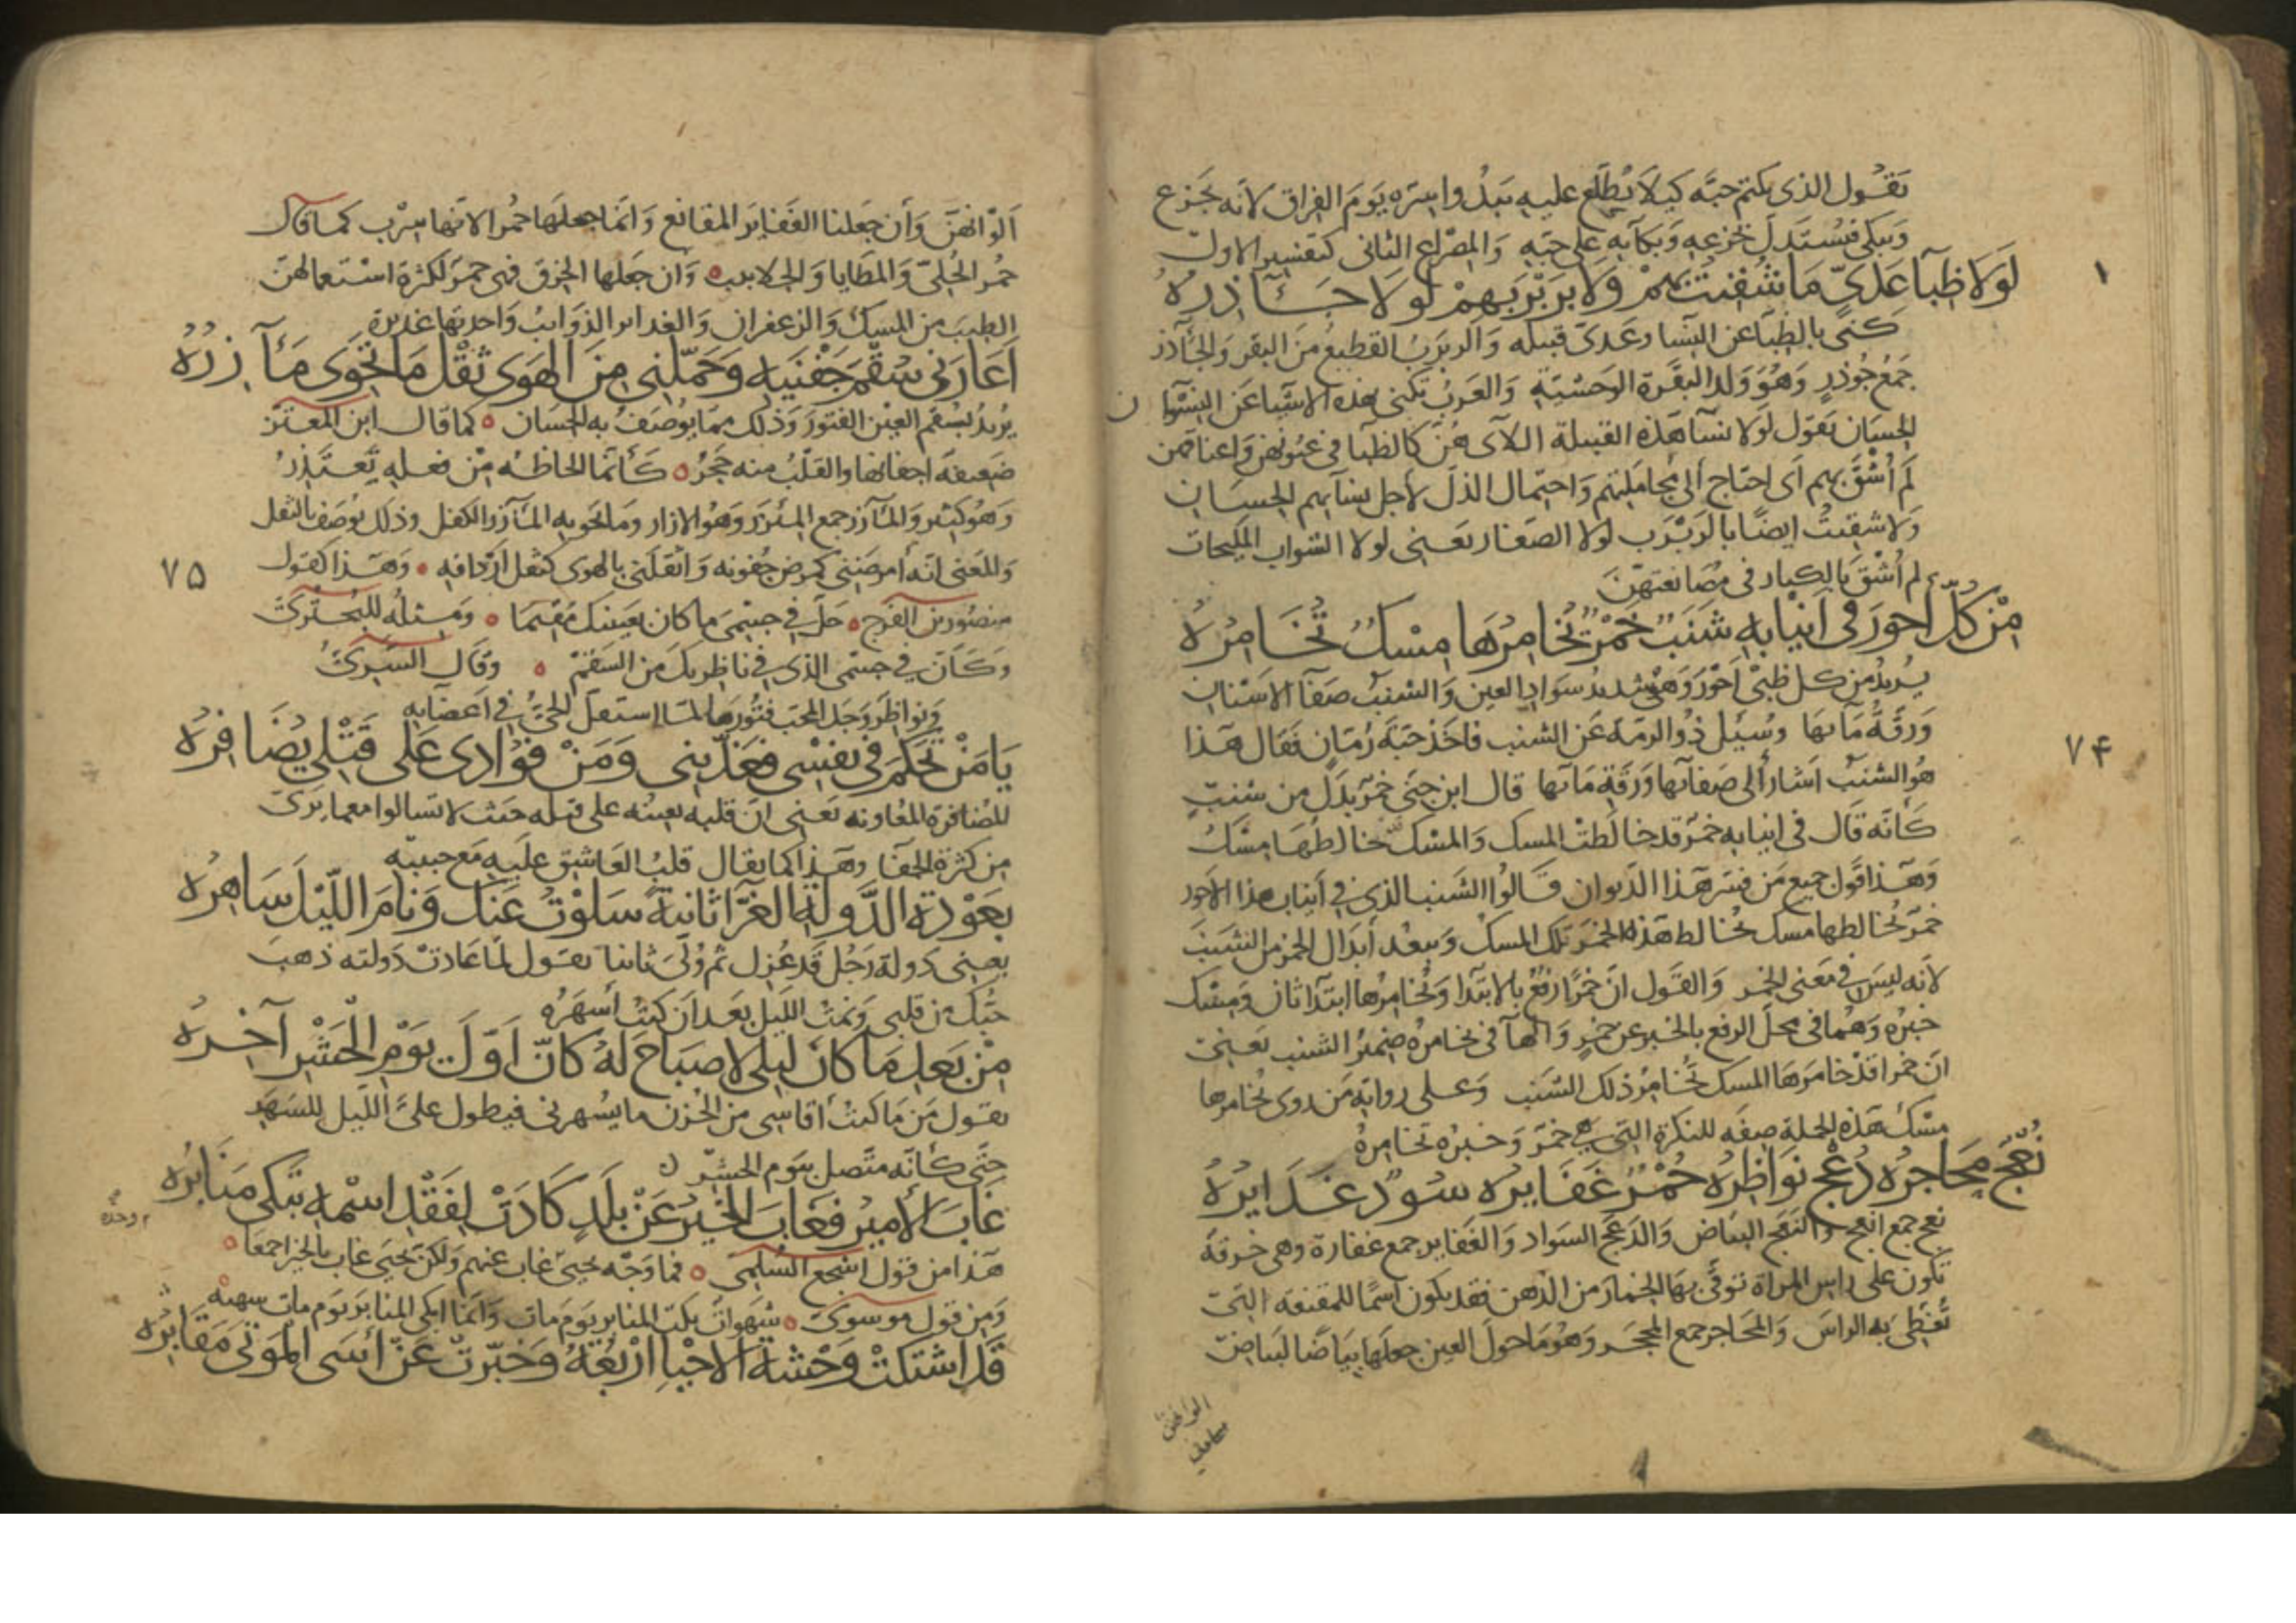 يقول الذى يكتم حبّه كيلا يُطّلع عليه يَبْدُوا سِرّه يوم الفراق لانّه يجزع
ويبكى فيُستدل بجزعه وبكآيه على حبّه والمصراع الثانى كتفسير الاول
لولا ظبآ عَدىّ ما شُقيت بهم ولا بربربهم لولا جآذره
كنى بالظبآ عن النسا وعدى قبيله والربرب القطيع من البقر والجآذر
جمع جُوذر وهو ولد البقرة الوحشية والعرب تكنى بهذه الاشيا عن النسوان
الحسان يقول لولا نسآ هذه القبيلة اللآى هنّ كالظبآ فى عيونهن واعناقهن
لم أشق بهم اى احتاج الى مجاملتهم واحتمال الذل لاجل نسآيهم الحسان
ولا شقيتُ ايضًا بالربرب لولا الصغار يعنى لولا الشواب المليحات
لم أشق بالكبار فى مصانعتهنّ
من كلّ احور فى انيابه شنب خمر يُخامرها مسك تُخامرُهُ
يريد من كل ظبى أحور وهو شديد سواد العين والشنب صفآ الاسنان
ورقّة مآئها وسُئِل ذو الرمّة عن الشنب فاخذ حبّة رُمّان فقال هذا
هو الشنب اشار الى صفآئها ورقة مآئها قال ابن جنى خمر بدل من شنب
كأنّه قال فى انيابه خمر قد خالطت المسك والمسك خالطها مسك
وهذا قول جميع من فسّر هذا الديوان قالوا الشنب الذى فى أنياب هذا الاحور
خمر تخالطها مسك تخالط هذه الخمر تلك المسك ويبعد أبدال الخمر من الشنب
لانّه ليس فى معنى الخمر والقول انّ خمرًا رفع بالابتدا وتخامرها ابتدآ ثان ومسك
خبره وهما فى محل الرفع بالخبر عن خمر والهآ فى تخامره ضمير الشنب يعنى
انّ خمرا قد خامرها المسك تُخامر ذلك الشنب وعلى رواية من روى تُخامرها
مسك هذه الجملة صفه للنكرة التى هى خمر وخبره تخامرهُ
نُعْج محاجره دُعْج نواظره حُمْر غفايره سود غدايرُهُ
نعج جمع انعج والنعج البياض والدعج السواد والغفاير جمع غفارة وهى خرقة
تكون على راس المراة توقى بها الخمار من الدهن فقد يكون اسمًا للمقنعة التى
تغطى به الراس والمحاجر جمع المحجر وهو ما حول العين جعلها بياضًا لبياض
١
٧۴
الوانهنّ
ألوانهنّ وأن جعلنا الغفاير المقانع وانما جعلها حمُرا لانّها سرْب كما قال
حمر الحُلىّ والمطايا والجلابيب وان جعلها الخرق فهى حمر لكثرة استعمالهنّ
الطيب من المسك والزعفران والغداير الذوايب واحدتها غديرة
أعارنى سُقْمَ جَفْنَيه وحَمّلنى من الهوى ثقْل ما تحْوى مآزرُهُ
يريد بسقم العين الفتور وذلك ممّا يوصف به الحسان كما قال ابن المعتز
ضعيفة اجفانها والقلب منه حجرُ كأنّما الحاظه من فعله تعتذرُ
وهو كثير والمآزر جمع المئزر وهو الازار وما تحويه المآزر الكفل وذلك يوصف بالثقل
والمعنى انّه أمرضنى كمرض جفونه واثقلنى بالهوى كثقل أردافه وهذا كقول
منصور بن الفرج حلّ فى جسمى ما كان بعينيك مقيما ومثله للبحترى
وكأنّ فى جسمى الذى فى ناظريك من السقم وقال السرى
ونواظر وجد المحب فتورها لمّا استقلّ الحىّ فى اعضآيه
يا مَنْ تحكّم فى نفسى فعذّبنى ومَنْ فؤادى على قتلى يُضافرُهُ
المضافرة المعاونه يعنى انّ قلبه يعينه على قتله حيث لا يسالوا مع ما يرى
من كثرة الجفآ وهذا كما يقال قلب العاشق عليه مع حبيبه
بعودة الدَّولة الغرّآ ثانيةً سلوتُ عنك ونام الليل ساهرُه
يعنى دولة رجل قد عُزل ثم وُلّى ثانيا يقول لما عادت دولته ذهب
حبّك من قلبى ونمت الليل بعد ان كنتُ أسهرُه
من بعد ما كان ليلى لا صباح له كانّ اوّل يوم الحشر آخرُهُ
يقول من ما كنت أقاسى من الحُزن ما يسهرنى فيطول علىّ الليل للسهد
حتّى كأنّه متّصل بيوم الحشر
غاب الأمير فغاب الخير عَنْ بلدٍ كادَتْ لفقد اسْمه تبكى منابرُه
هذا من قول اشجع السلمى فما وجْه يحيى غاب عنهم ولكنّ يحيى غاب بالخير اجمعا
ومن قول موسوى بكت المنابر يوم مات وانما ابكى المنابر يوم مات
قد اشتكتْ وحْشة الاحيا اربُعُهُ وخَبّرتْ عَنْ أسى الموتى مقابرُه
٧۵